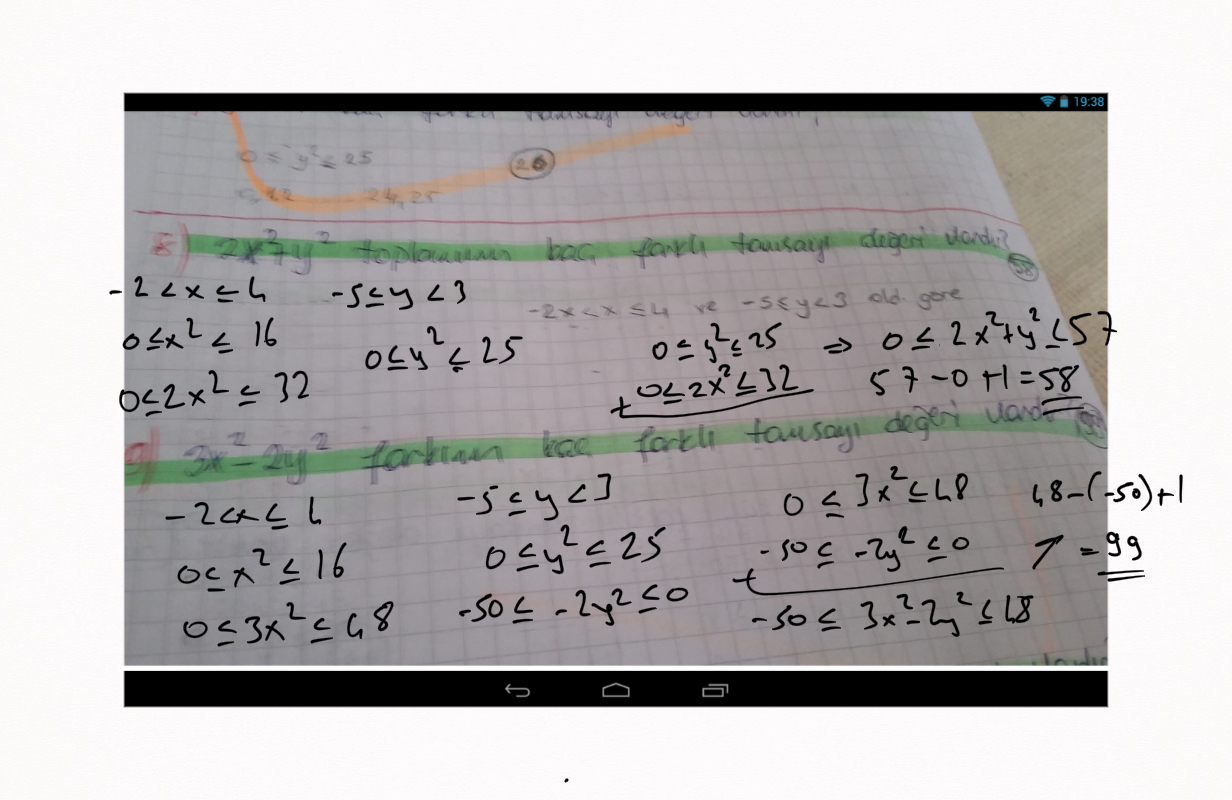 19:38
farklı tamsayı değeri vardır,
0 ≤ y² ≤ 25
26
24,25
8) 2x²+y² toplamının kaç farklı tamsayı değeri vardır?
58
-2x<x≤4 ve -5≤y<3 old. göre
-2<x≤4 -5≤y<3
0≤x²≤16 0≤y²≤25 0≤y²≤25 ⇒ 0≤2x²+y²≤57
0≤2x²≤32 + 0≤2x²≤32 57-0+1=58
9) 3x²-2y² farkının kaç farklı tamsayı değeri vardır
-2<x≤4 -5≤y<3 0≤3x²≤48 48-(-50)+1
0≤x²≤16 0≤y²≤25 + -50≤-2y²≤0 =99
0≤3x²≤48 -50≤-2y²≤0 -50≤3x²-2y²≤48